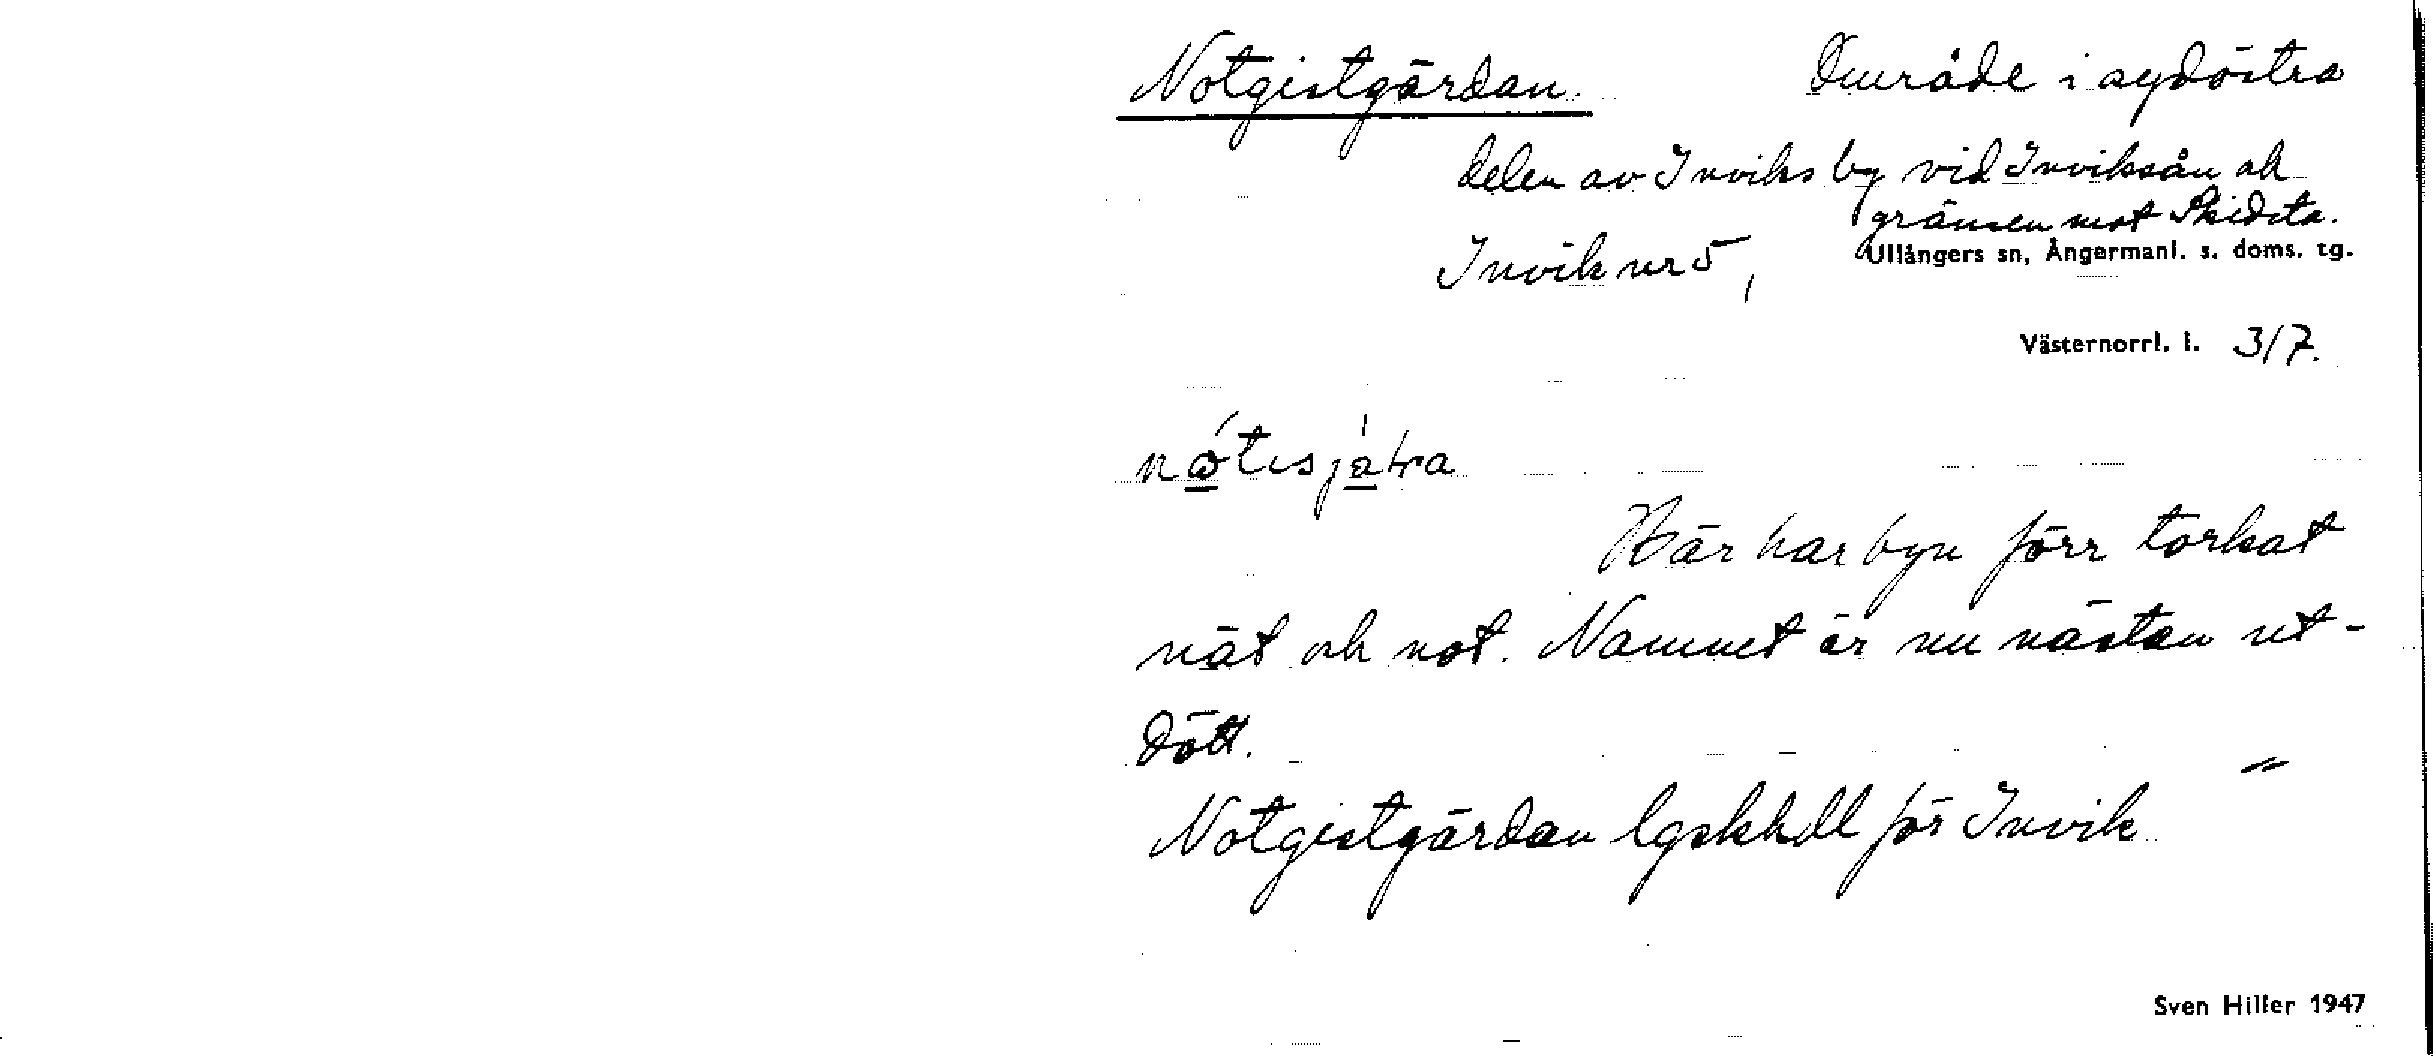 Notgistgärdan. Område i sydöstra
delen av Inviks by vid Inviksån och
gränsen mot Skidsta.
Invik nr 5, Ullångers sn, Ångermanl. s. doms. tg.
Västernorrl. l. 3/7.
Här har byn förr torkat
nät och not. Namnet är nu nästan ut-
dött.
Notgistgärdan lgskhdl för Invik
Sven Hiller 1947